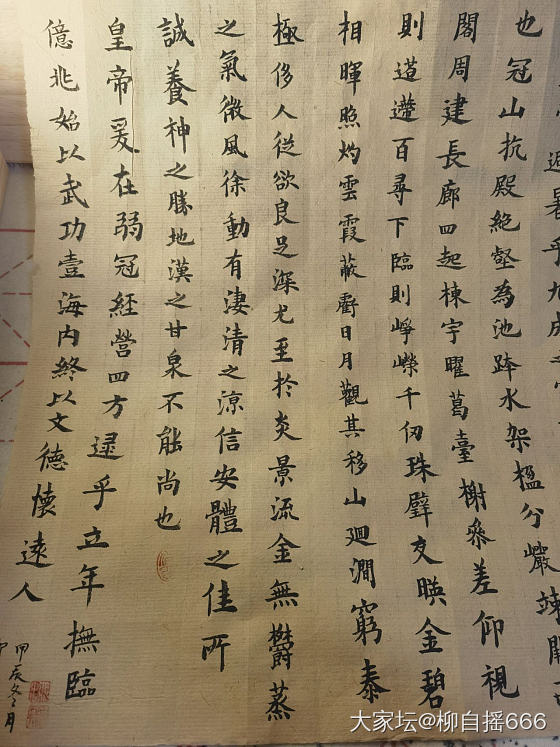 避暑乎九成之
也冠山抗殿絶壑為池跨水架楹分巖竦闕
閣周建長廊四起棟宇曜葛臺榭叅差仰視
則迢遰百尋下臨則崢嶸千仞珠璧交暎金碧
相暉照灼雲霞蔽虧日月觀其移山廻澗窮泰
極侈人從欲良足深尤至於炎景流金無鬱蒸
之氣微風徐動有淒清之涼信安體之佳所
誠養神之勝地漢之甘泉不能尚也
皇帝爰在弱冠經營四方逮乎立年撫臨
億兆始以武功壹海内終以文德懷遠人
甲辰冬月
大家坛@柳自摇666